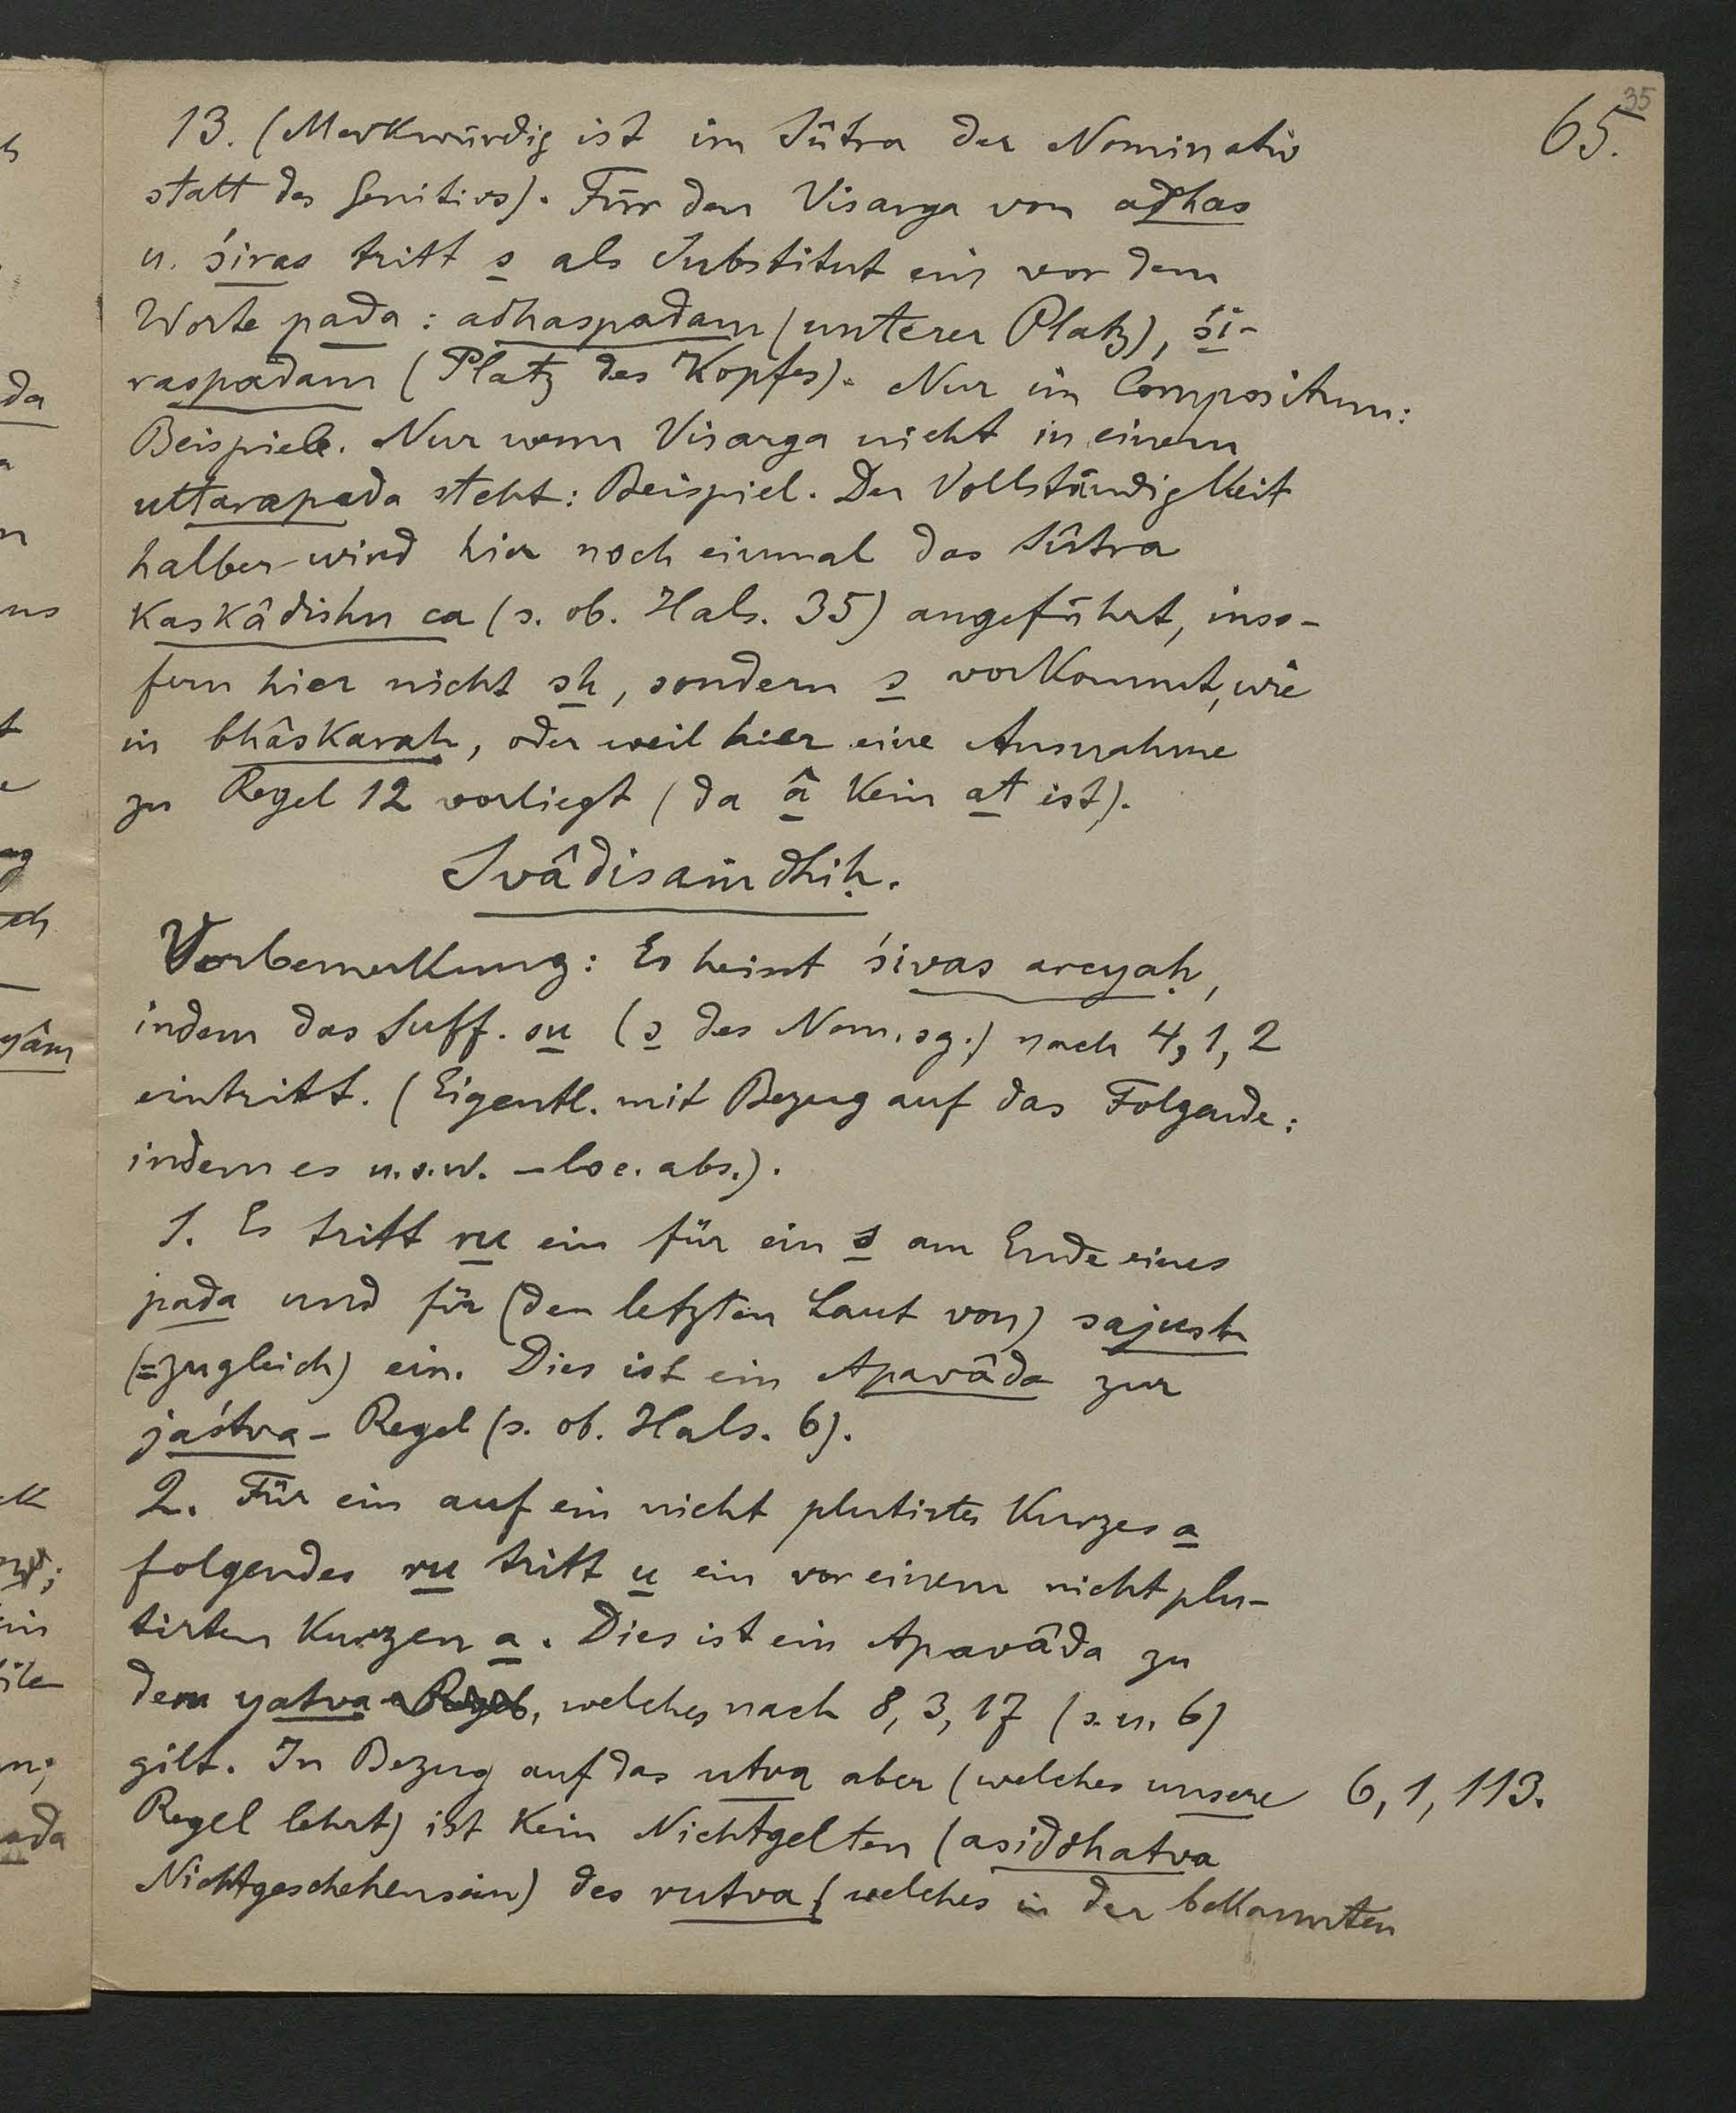 35
65.
13. (Merkwürdig ist im Sûtra der Nominativ
statt des Genitivs). Für den Visarga von adhas
u. śiras tritt s als Substitut ein vor dem
Worte pada: adhaspadam (unterer Platz), śi-
raspadam (Platz des Kopfes). Nur im Compositum:
Beispiele. Nur wenn Visarga nicht in einem
uttarapada steht: Beispiel. Der Vollständigkeit
halber wird hier noch einmal das Sûtra
kaskâdishu ca (s. ob. Hals. 35) angeführt, inso-
fern hier nicht sh, sondern s vorkommt, wie
in bhâskaraḥ, oder weil hier eine Ausnahme
zu Regel 12 vorliegt (da â kein at ist).
Svâdisaṁdhiḥ.
Vorbemerkung: Es heisst śivas arcyaḥ,
indem das Suff. su (s des Nom. sg.) nach 4, 1, 2
eintritt. (Eigentl. mit Bezug auf das Folgende:
indem es u.s.w. – loc. abs.).
1. Es tritt ru ein für ein s am Ende eines
pada und für (den letzten Laut von) sajush
(=zugleich) ein. Dies ist ein Apavâda zur
jaśtva-Regel (s. ob. Hals. 6).
2. Für ein auf ein nicht plutirtes kurzes a
folgendes ru tritt u ein vor einem nicht plu-
tirten kurzen a. Dies ist ein Apavâda zu
dem yatva-Regel, welches nach 8, 3, 17 (s. u. 6)
gilt. In Bezug auf das utva aber (welches unsere 6, 1, 113.
Regel lehrt) ist kein Nichtgelten (asiddhatva
Nichtgeschehensein) des rutva (welches in der bekannten